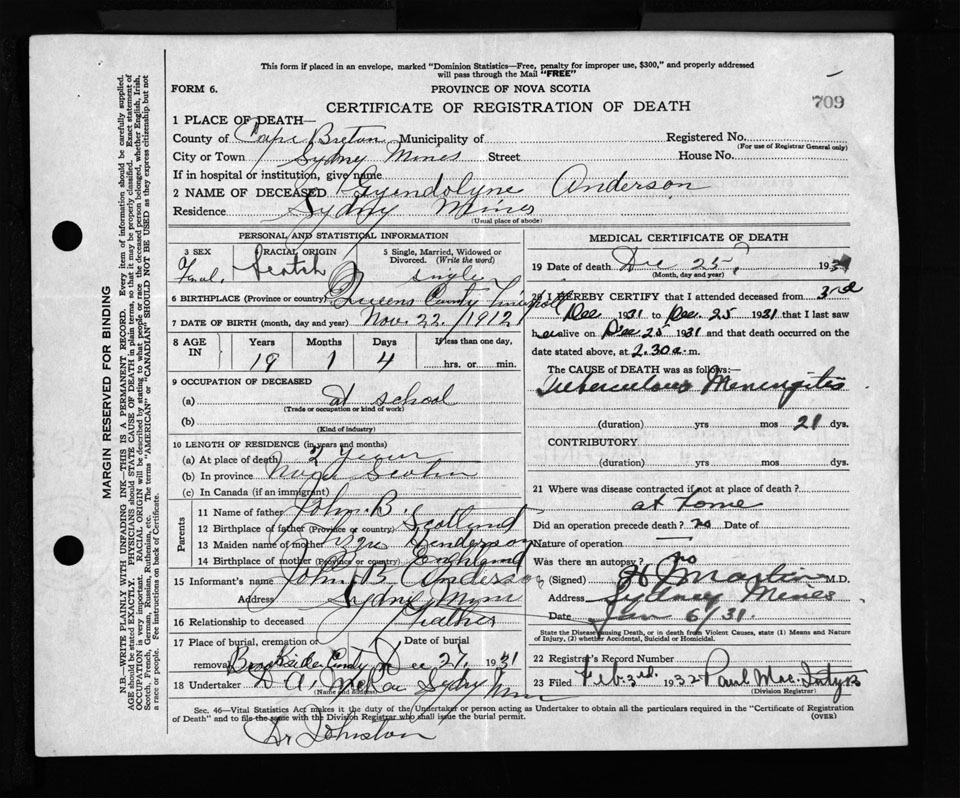 This form if placed in an envelope, marked "Dominion Statistics—Free, penalty for improper use, $300," and properly addressed
will pass through the Mail "FREE"
FORM 6. PROVINCE OF NOVA SCOTIA
CERTIFICATE OF REGISTRATION OF DEATH 709
1 PLACE OF DEATH—
County of Cape Breton Municipality of Registered No.
(For use of Registrar General only)
City or Town Sydney Mines Street House No.
If in hospital or institution, give name
2 NAME OF DECEASED Gwendolyne Anderson
Residence Sydney Mines
(Usual place of abode)
PERSONAL AND STATISTICAL INFORMATION
3 SEX RACIAL ORIGIN 5 Single, Married, Widowed or
Divorced. (Write the word)
Fmal. Scotch single
6 BIRTHPLACE (Province or country) Queens County
7 DATE OF BIRTH (month, day and year) Nov. 22. 1912
8 AGE IN Years Months Days If less than one day,
19 1 4 hrs. or min.
9 OCCUPATION OF DECEASED
(a) at school
(Trade or occupation or kind of work)
(b)
(Kind of industry)
10 LENGTH OF RESIDENCE (in years and months)
(a) At place of death 2 years
(b) In province Nova Scotia
(c) In Canada (if an immigrant)
Parents
11 Name of father John B.
12 Birthplace of father (Province or country) Scotland
13 Maiden name of mother Henderson
14 Birthplace of mother (Province or country) England
15 Informant's name John B. Anderson
Address Sydney Mines
16 Relationship to deceased Father
17 Place of burial, cremation or Date of burial
removal Dec 27, 1931
18 Undertaker D A. McRae Sydney Mines
(Name and address)
MEDICAL CERTIFICATE OF DEATH
19 Date of death Dec 25, 1931
(Month, day and year)
20 I HEREBY CERTIFY that I attended deceased from 3rd
Dec 1931 to Dec 25 1931 that I last saw
her alive on Dec 25 1931 and that death occurred on the
date stated above, at 2.30 a.m.
The CAUSE of DEATH was as follows:—
Tuberculous Meningitis
(duration) yrs mos 21 dys.
CONTRIBUTORY
(duration) yrs. mos. dys.
21 Where was disease contracted if not at place of death?
at home
Did an operation precede death? no Date of
Nature of operation —
Was there an autopsy? no
(Signed) Martin M.D.
Address Sydney Mines
Date Jan 6/31.
State the Disease causing Death, or in death from Violent Causes, state (1) Means and Nature
of Injury, (2) whether Accidental, Suicidal or Homicidal.
22 Registrar's Record Number
23 Filed Feb. 3rd. 1932 Paul
(Division Registrar)
Sec. 46—Vital Statistics Act makes it the duty of the Undertaker or person acting as Undertaker to obtain all the particulars required in the "Certificate of Registration
of Death" and to file the same with the Division Registrar who shall issue the burial permit. (OVER)
Dr Johnston
MARGIN RESERVED FOR BINDING
N.B.—WRITE PLAINLY WITH UNFADING INK—THIS IS A PERMANENT RECORD. Every item of information should be carefully supplied.
AGE should be stated EXACTLY. PHYSICIANS should STATE CAUSE OF DEATH in plain terms, so that it may be properly classified. Exact statement of
OCCUPATION is very important. RACIAL ORIGIN will be described by stating to what people or race the deceased person belonged, whether English, Irish,
Scotch, French, German, Russian, Ruthenian, etc. The terms "AMERICAN" or "CANADIAN" SHOULD NOT BE USED as they express citizenship but not
a race or people. Fee instructions on back of Certificate.